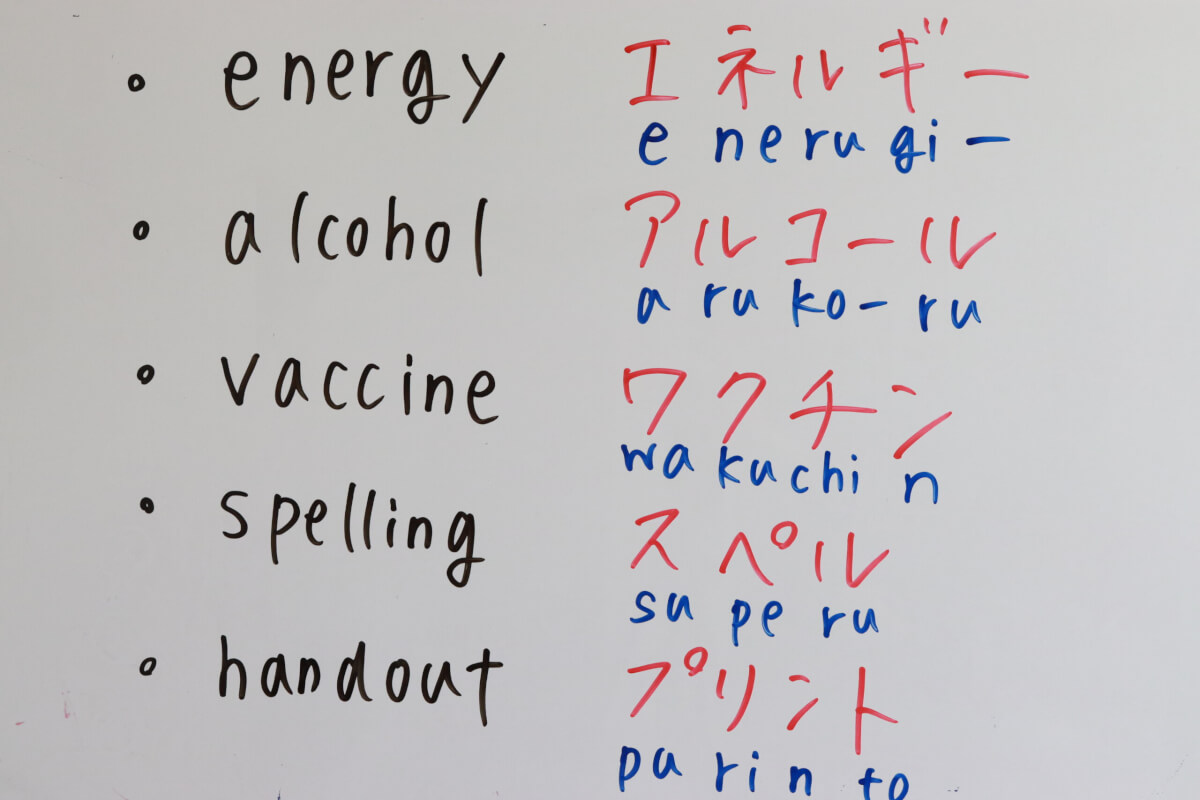 • energy エネルギー
e nerugi-
• alcohol アルコール
a ru ko-ru
• vaccine ワクチン
wa kuchi n
• spelling スペル
su pe ru
• handout プリント
pu ri n to